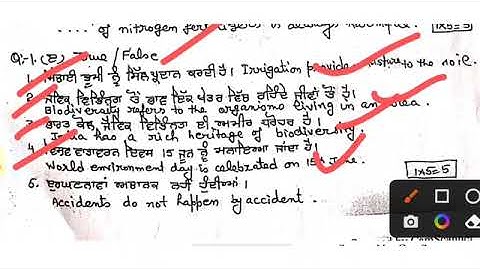 of nitrogen fertilizers is always harmful. 1x5=5
Q:-1. (ੲ) True / False
1. ਸਿੰਚਾਈ ਭੂਮੀ ਨੂੰ ਸਿੱਲ੍ਹ ਪ੍ਰਦਾਨ ਕਰਦੀ ਹੈ। Irrigation provides moisture to the soil.
2. ਜੈਵਿਕ ਵਿਭਿੰਨਤਾ ਤੋਂ ਭਾਵ ਇੱਕ ਖੇਤਰ ਵਿੱਚ ਰਹਿੰਦੇ ਜੀਵਾਂ ਤੋਂ ਹੈ।
Biodiversity refers to the organisms living in an area.
3. ਭਾਰਤ ਕੋਲ ਜੈਵਿਕ ਵਿਭਿੰਨਤਾ ਦੀ ਅਮੀਰ ਧਰੋਹਰ ਹੈ।
India has a rich heritage of biodiversity.
4. ਵਿਸ਼ਵ ਵਾਤਾਵਰਣ ਦਿਵਸ 15 ਜੂਨ ਨੂੰ ਮਨਾਇਆ ਜਾਂਦਾ ਹੈ।
World environment day is celebrated on 15th June.
5. ਦੁਰਘਟਨਾਵਾਂ ਅਚਾਨਕ ਨਹੀਂ ਹੁੰਦੀਆਂ।
Accidents do not happen by accident.
1x5=5